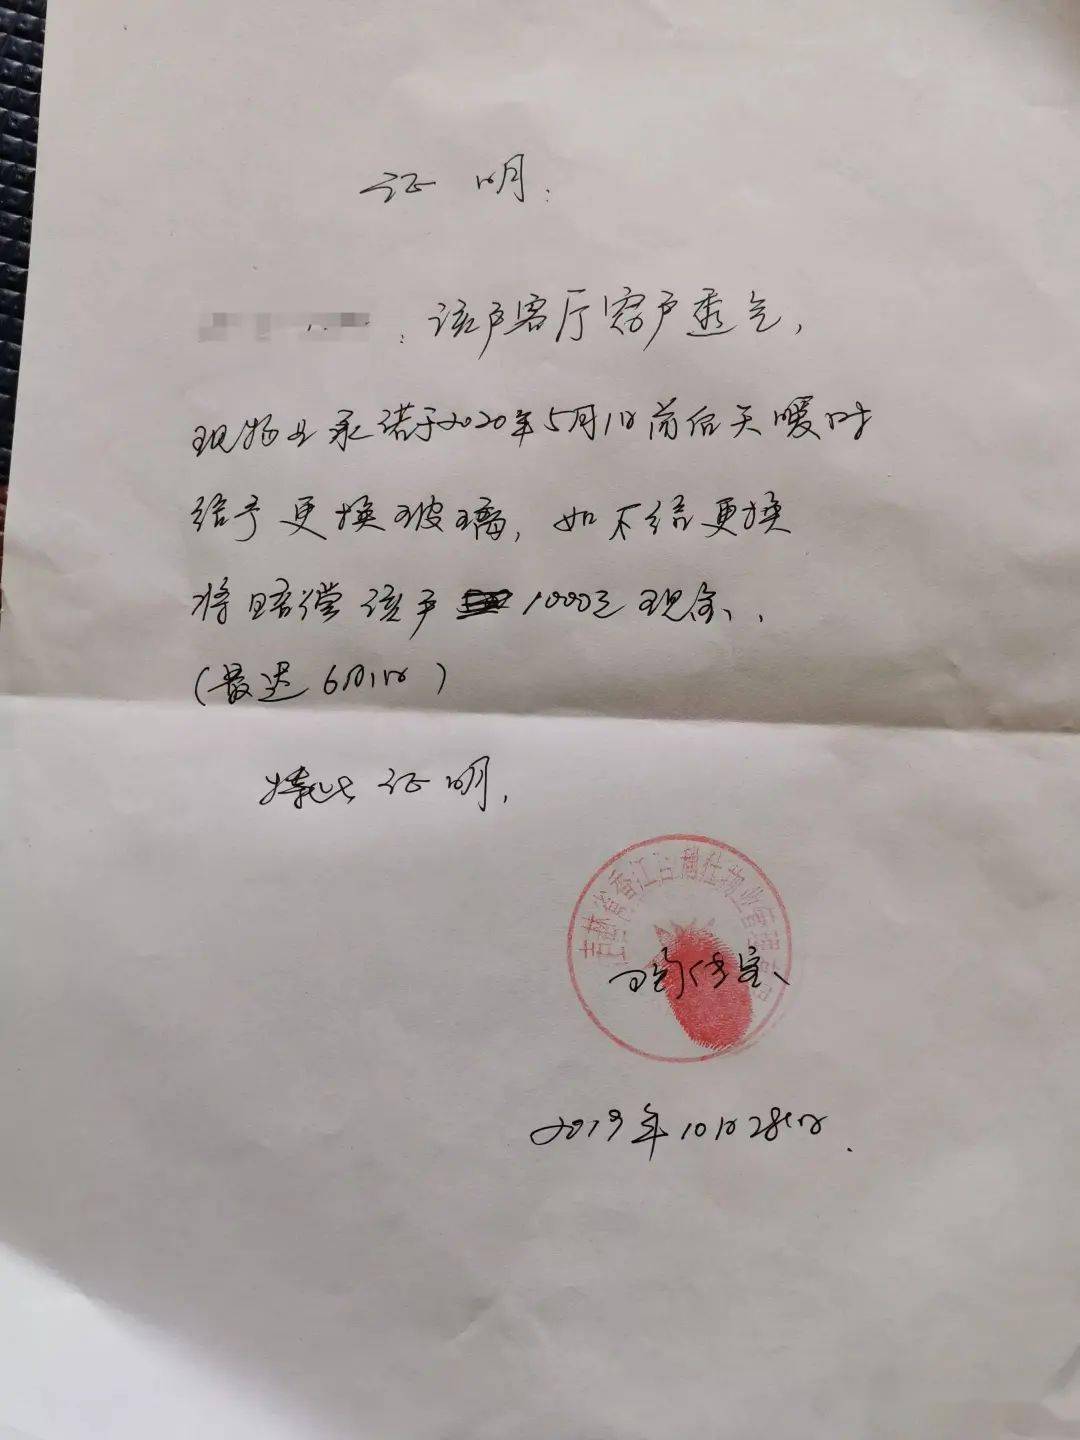 证 明：
：该户客厅窗户透气，
现物业承诺于2020年5月1日前后天暖时
给予更换玻璃，如不给更换
将赔偿该户 1000元现金、．
(最迟6月1日)
特此证明．
吉林省香江 物业管理
2019年10月28日．